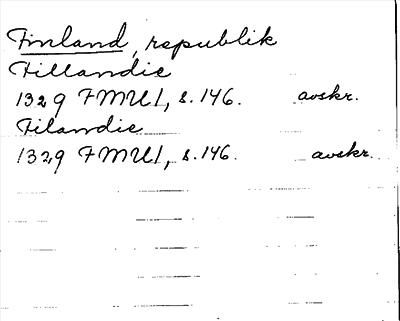 Finland, republik
Fillandie
1329 FMU I, s. 146. avskr.
Filandie
1329 FMU I, s. 146. avskr.